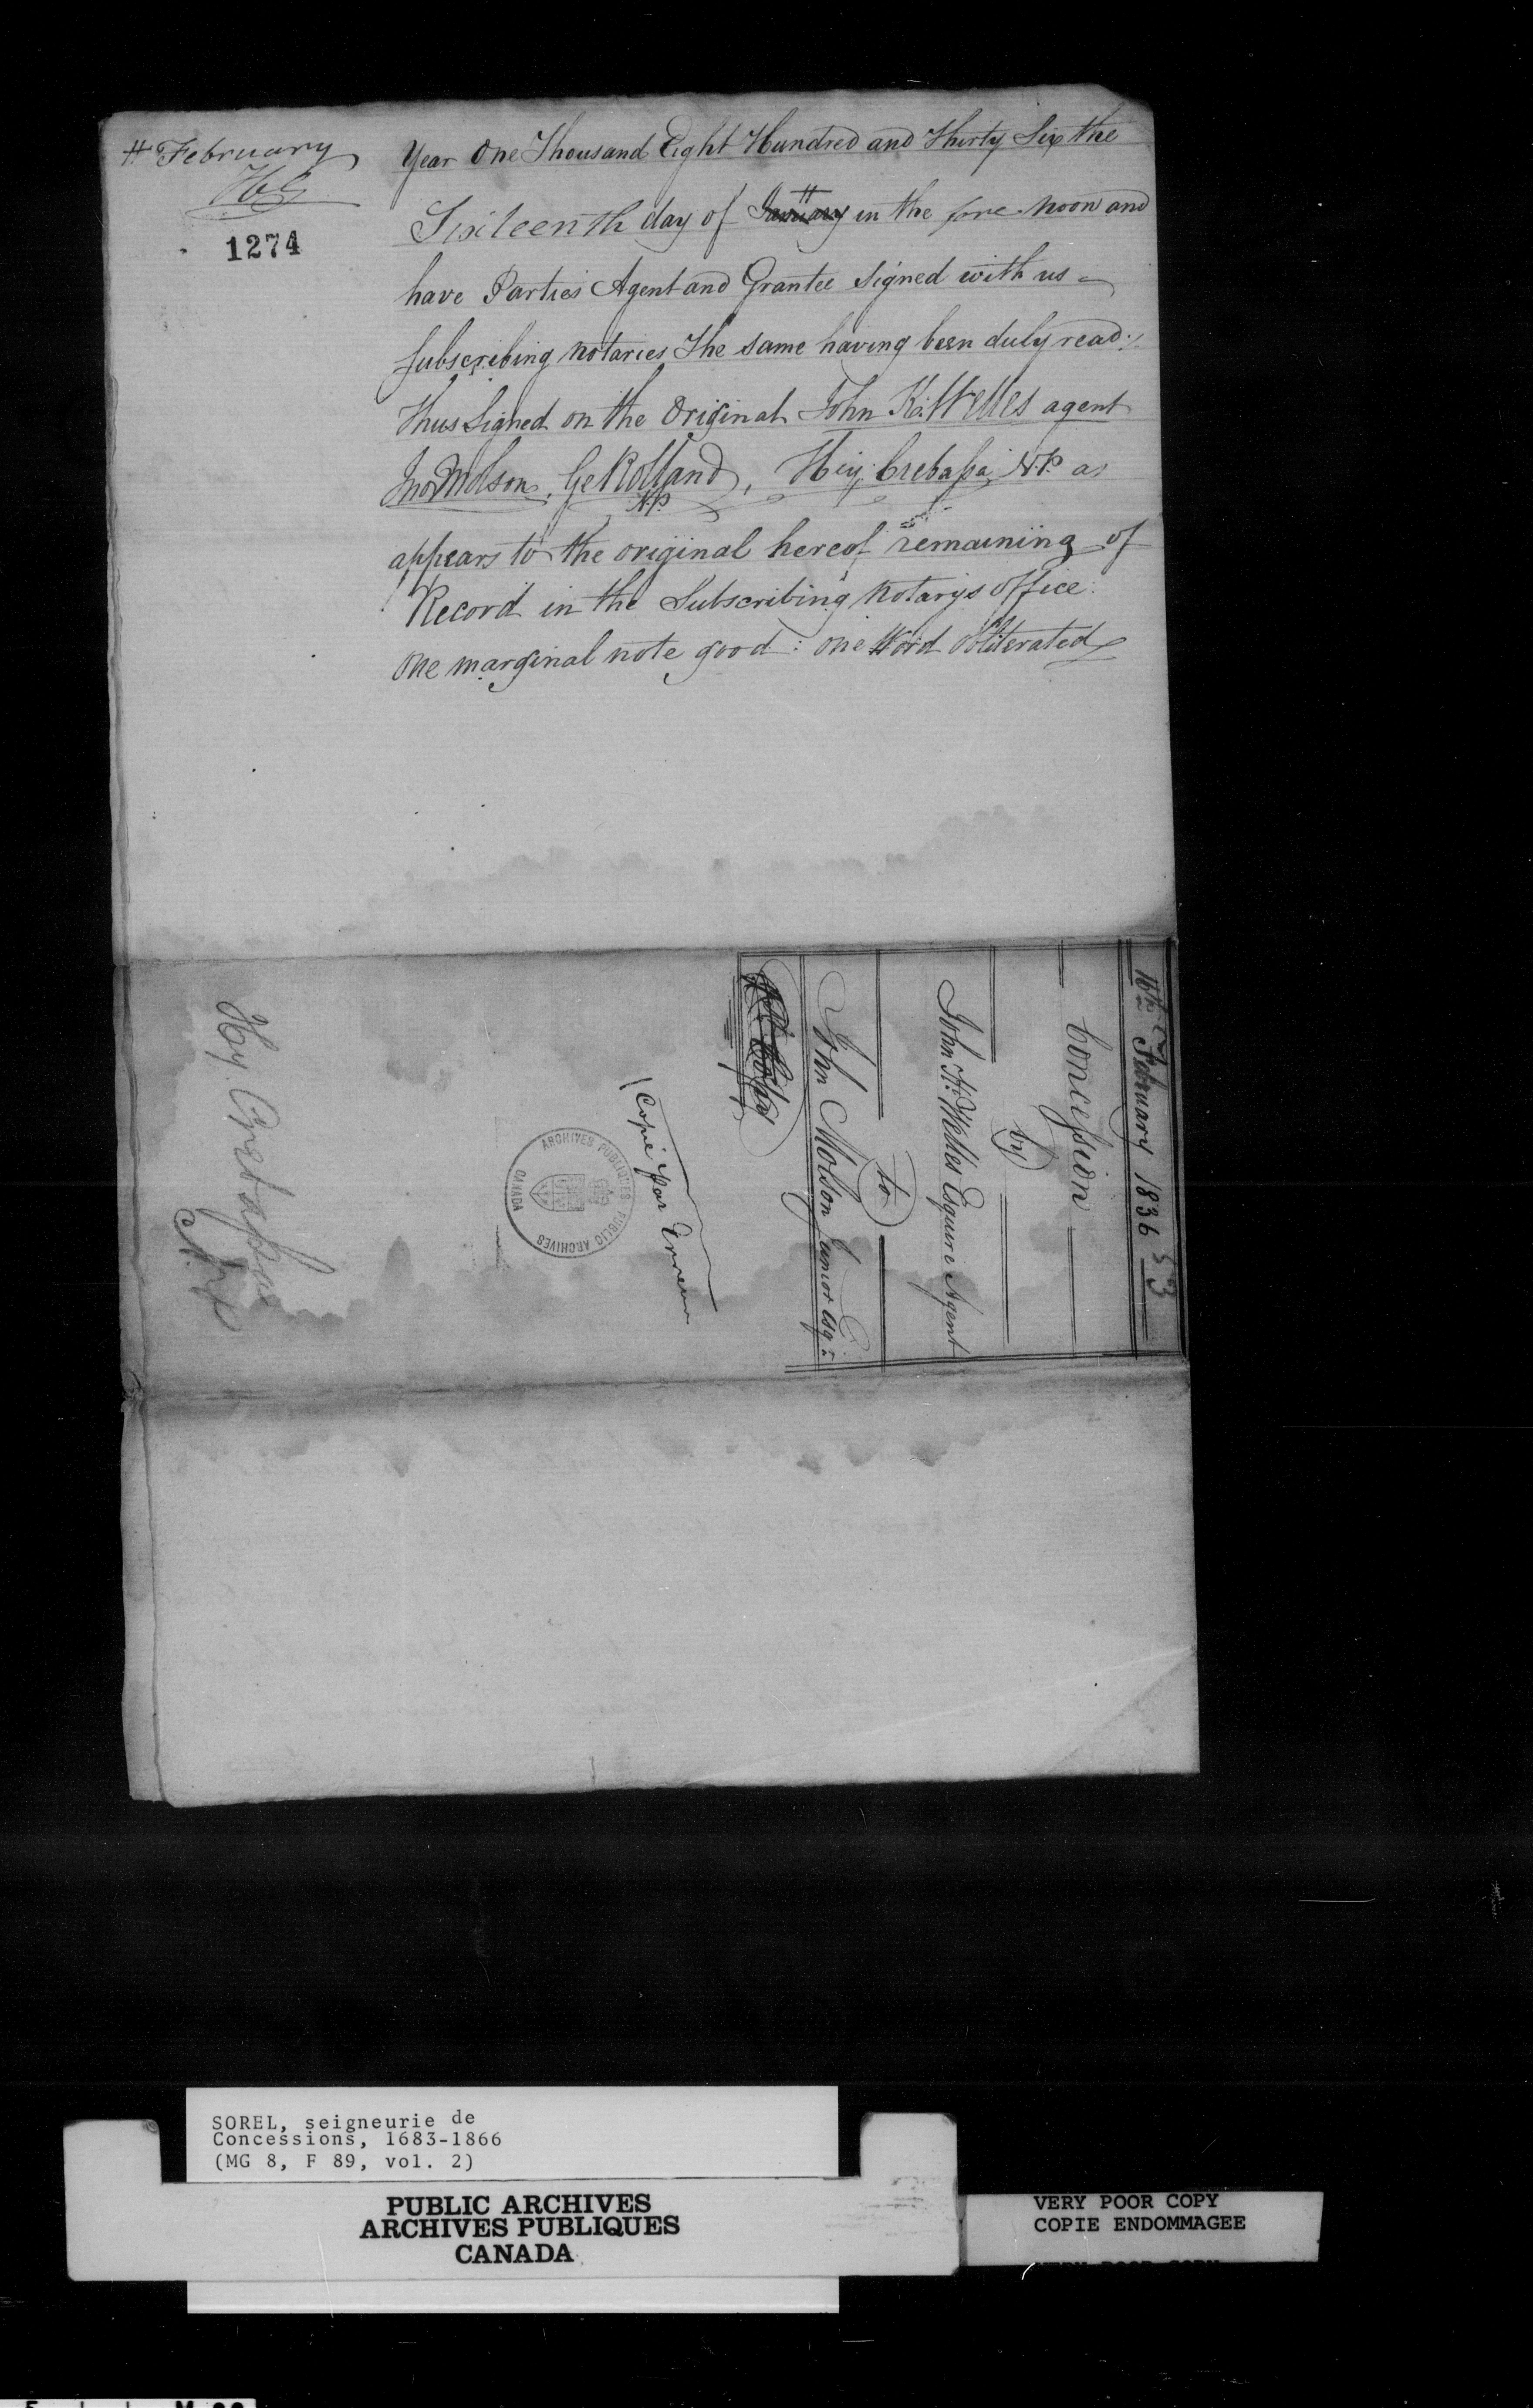 # February
HC
1274
Year One Thousand Eight Hundred and Thirty Six the
Sixteenth day of January in the fore noon and
have Parties Agent and Grantee Signed with us
Subscribing Notaries The Same having been duly read:/
Thus Signed on the Original John K. Welles agent
Jno Molson, Ge Rolland, Hy. Crebassa N.P. as
N.P.
appears to the original hereof remaining of
Record in the Subscribing Notarys Office:
One marginal note good: One Word Obliterated
16th February 1836 53
Concession
by
John K. Welles Esquire Agent
to
John Molson Junior Esqr:
Copié par Erreur
ARCHIVES PUBLIQUES PUBLIC ARCHIVES
CANADA
Hy. Crebassa
N.P.
SOREL, seigneurie de
Concessions, 1683-1866
(MG 8, F 89, vol. 2)
PUBLIC ARCHIVES
ARCHIVES PUBLIQUES
CANADA
VERY POOR COPY
COPIE ENDOMMAGEE
VERY POOR COPY